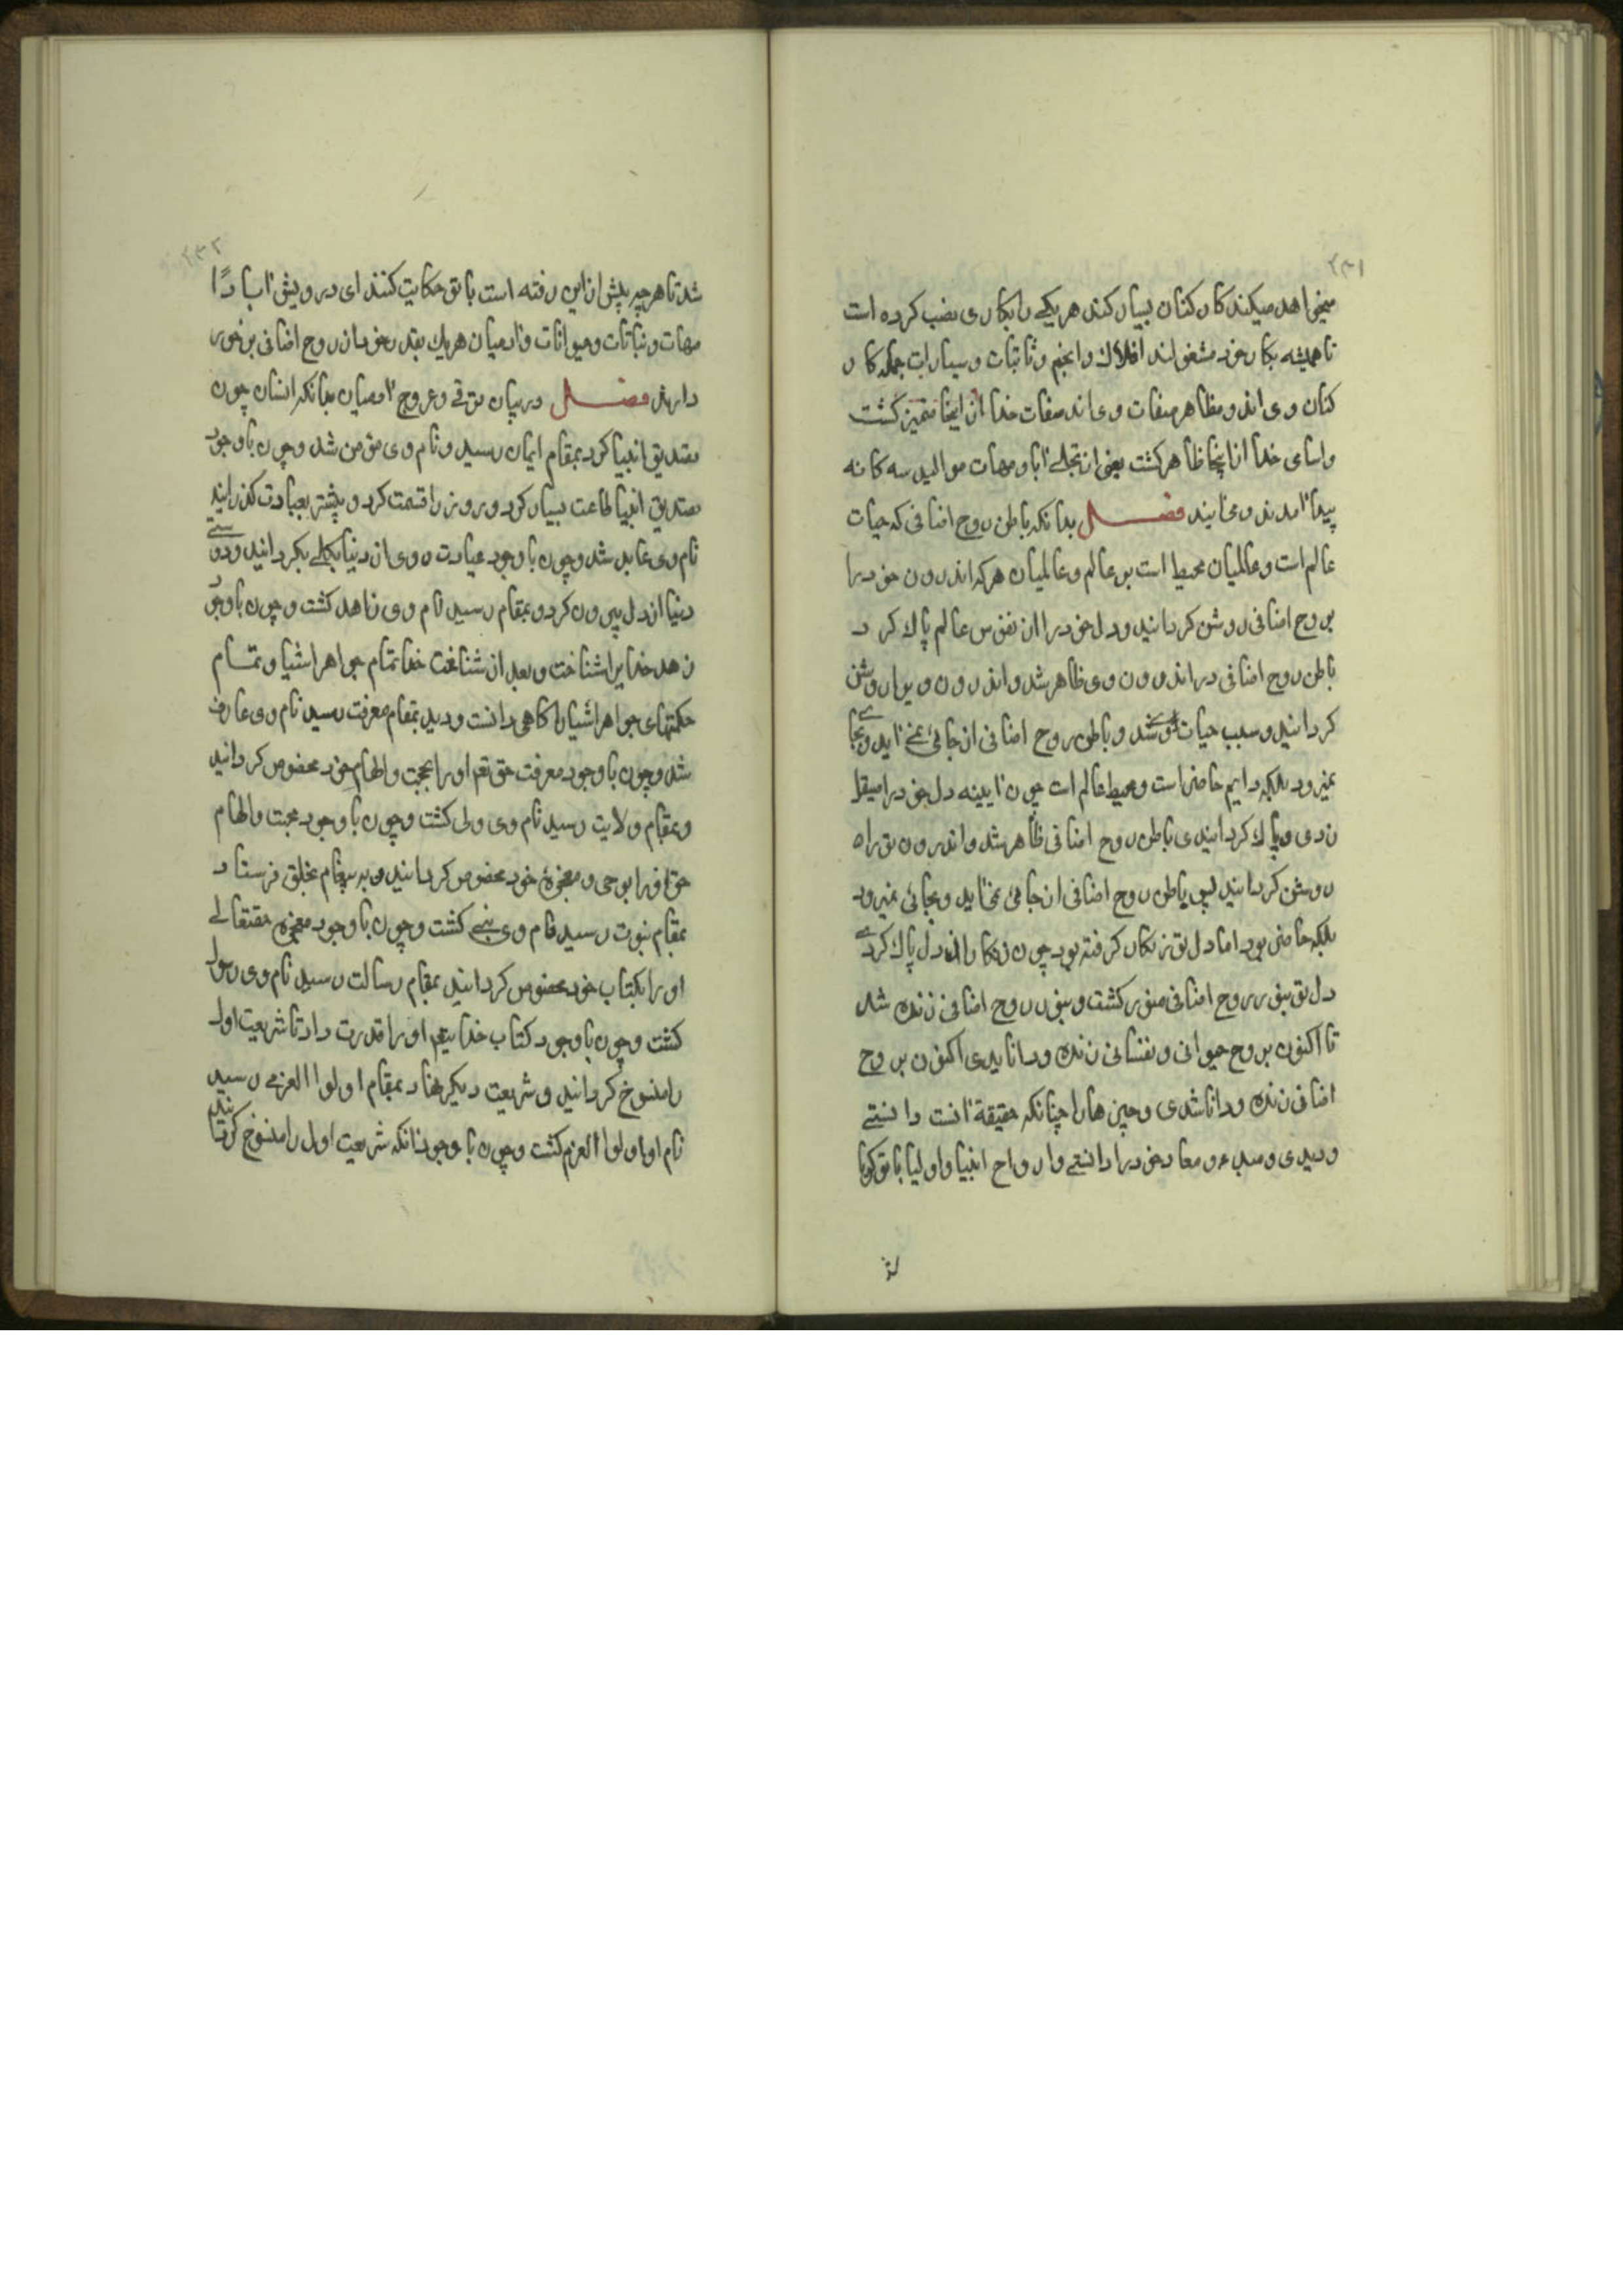 ۲۳۱
میخواهد میکند کار کنان بسیار کند هر یکی را بکاری نصب کرده است
تا همیشه بکار خود مشغولند افلاک و انجم و ثابتات و سیارات جمله کار
کنان وی اند و مظاهر صفات وی اند صفات خدا از اینجا متمیز گشت
و اسای خدا از اینجا ظاهر کشت یعنی از تجلے آبا و مهات موالید سه کانه
پیدا آمدند و می‌آیند فصل بدانکه باطن روح اضافی که حیات
عالم است و عالمیان محیط است بر عالم و عالمیان هر که اندرون خود را
بروح اضافی روشن کردانید و دل خود را از نقوس عالم پاک کرد
باطن روح اضافی در اندرون وی ظاهر شد و اندرون ویرا روشن
کردانید و سبب حیات شد و باطن روح اضافی از جائی نمی آید و بجائے
نمیرود بلکه دایم حاضر است و محیط عالم است چون آیینه دل خود را صیقل
زدی و پاک کردانیدی باطن روح اضافی ظاهر شد و اندرون تو راه
روشن کردانید پس باطن روح اضافی از جائی نمی آید و بجائی نمیرود
بلکه حاضر بود اما دل تو زنکار گرفته بود چون زنکار از دل پاک کردے
دل تو بنور روح اضافی منور کشت و بنور روح اضافی زنده شد
تا اکنون بروح حیوانی و نفسانی زنده و دانا بودی اکنون بروح
اضافی زنده و دانا شدی و چیزها را چنانکه حقیقة آنست دانستے
و دیدی و مبدء و معاد خود را دانستے و ارواح انبیا و اولیا با تو گویا
شد
۲۳۲
شد تا هر چه پیش از این رفته است با تو حکایت کنند ای درویش آبا را
مهات و نباتات و حیوانات و آدمیان هر یک بقدر خود از روح اضافی برخوری
دارند فصل در بیان ترقے و عروج آدمیان بدانکه انسان چون
تصدیق انبیا کرد بمقام ایمان رسید و نام وی مؤمن شد و چون باوجود
تصدیق انبیا طاعت بسیار کرد و روز را قسمت کرد و بیشتر بعبادت گذرانید
نام وی عابد شد و چون باوجود عبادت روی از دنیا بکلے بکردانید و دوستے
دنیا از دل بیرون کرد و بمقام رسید نام وی زاهد کشت و چون باوجود
زهد خدایرا شناخت و بعد از شناخت خدا تمام جواهر اشیا و تمام
حکمتهای جواهر اشیا را کاهی دانست و دید بمقام معرفت رسید نام وی عارف
شد و چون باوجود معرفت حق تعم او را بمحبت و الهام خود مخصوص کردانید
و بمقام ولایت رسید نام وی ولی کشت و چون باوجود محبت و الهام
حق او را بوحی و معجزهٔ خود مخصوص کردانید و به پیغام بخلق فرستاد
بمقام نبوت رسید نام وی نبیے کشت و چون باوجود معجزه حقتعالے
او را بکتاب خود مخصوص کردانید بمقام رسالت رسید نام وی رسول
کشت و چون باوجود کتاب خدایتعم او را قدرت داد تا شریعت اول
را منسوخ کردانید و شریعت دیکر نهاد بمقام اولوا العزمے رسید
نام او اولوا العزم کشت و چون باوجود آنکه شریعت اول را منسوخ کردانید